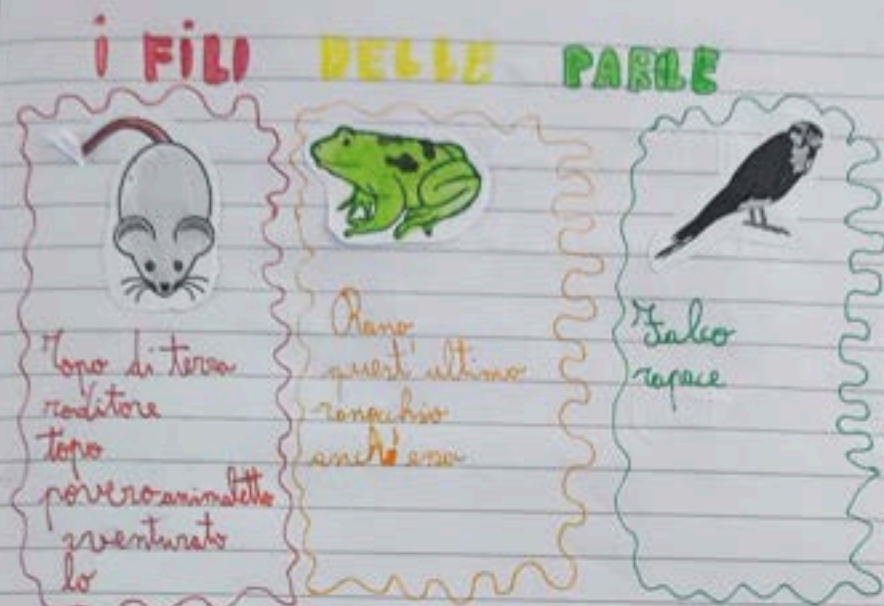 I FILI DELLE PAROLE
Topo di terra
roditore
topo
povero animaletto
sventurato
lo
Rana
quest'ultima
ranocchio
anch'essa
Falco
rapace